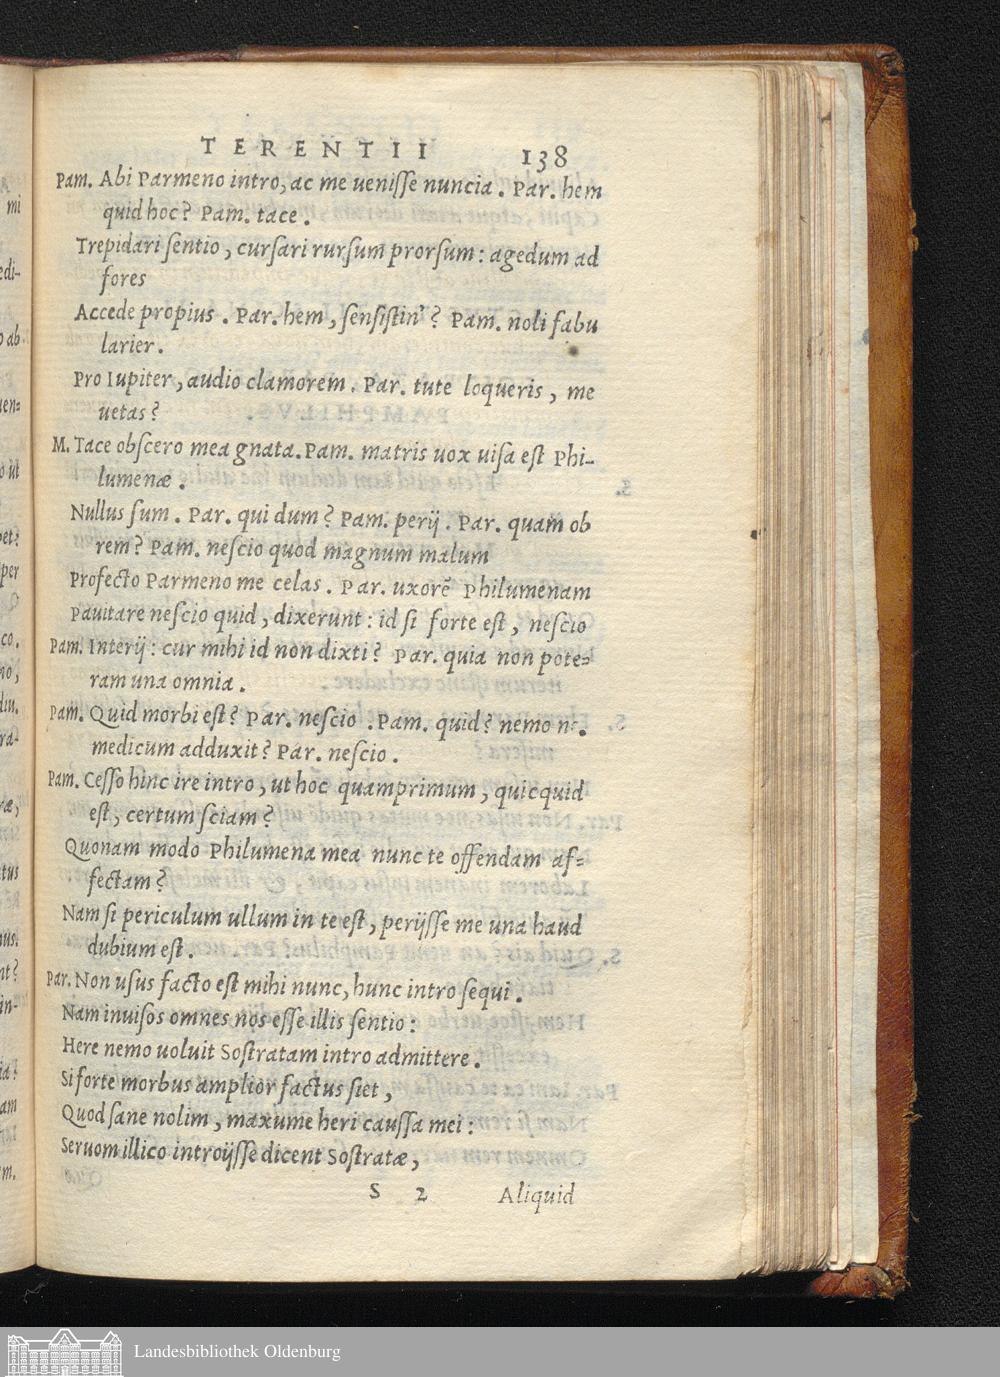 TERENTII 138
Pam. Abi Parmeno intro, ac me ueniſſe nuncia. Par. hem
quid hoc? Pam. tace.
Trepidari ſentio, curſari rurſum prorſum: agedum ad
fores
Accede propius. Par. hem, ſenſiſtin'? Pam. noli fabu
larier.
Pro Iupiter, audio clamorem. Par. tute loqueris, me
uetas?
M. Tace obſcero mea gnata. Pam. matris uox uiſa eſt Phi-
lumenæ.
Nullus ſum. Par. qui dum? Pam. perij. Par. quam ob
rem? Pam. neſcio quod magnum malum
Profecto Parmeno me celas. Par. uxorē Philumenam
Pauitare neſcio quid, dixerunt: id ſi forte eſt, neſcio
Pam. Interij: cur mihi id non dixti? Par. quia non pote=
ram una omnia.
Pam. Quid morbi eſt? Par. neſcio. Pam. quid? nemo
medicum adduxit? Par. neſcio.
Pam. Ceſſo hinc ire intro, ut hoc quamprimum, quicquid
eſt, certum ſciam?
Quonam modo Philumena mea nunc te offendam af=
fectam?
Nam ſi periculum ullum in te eſt, perijſſe me una haud
dubium eſt.
Par. Non uſus facto eſt mihi nunc, hunc intro ſequi.
Nam inuiſos omnes nos eſſe illis ſentio:
Here nemo uoluit Soſtratam intro admittere.
Si forte morbus amplior factus ſiet,
Quod ſane nolim, maxume heri cauſſa mei:
Seruom illico introijſſe dicent Soſtratæ,
S 2 Aliquid
Landesbibliothek Oldenburg